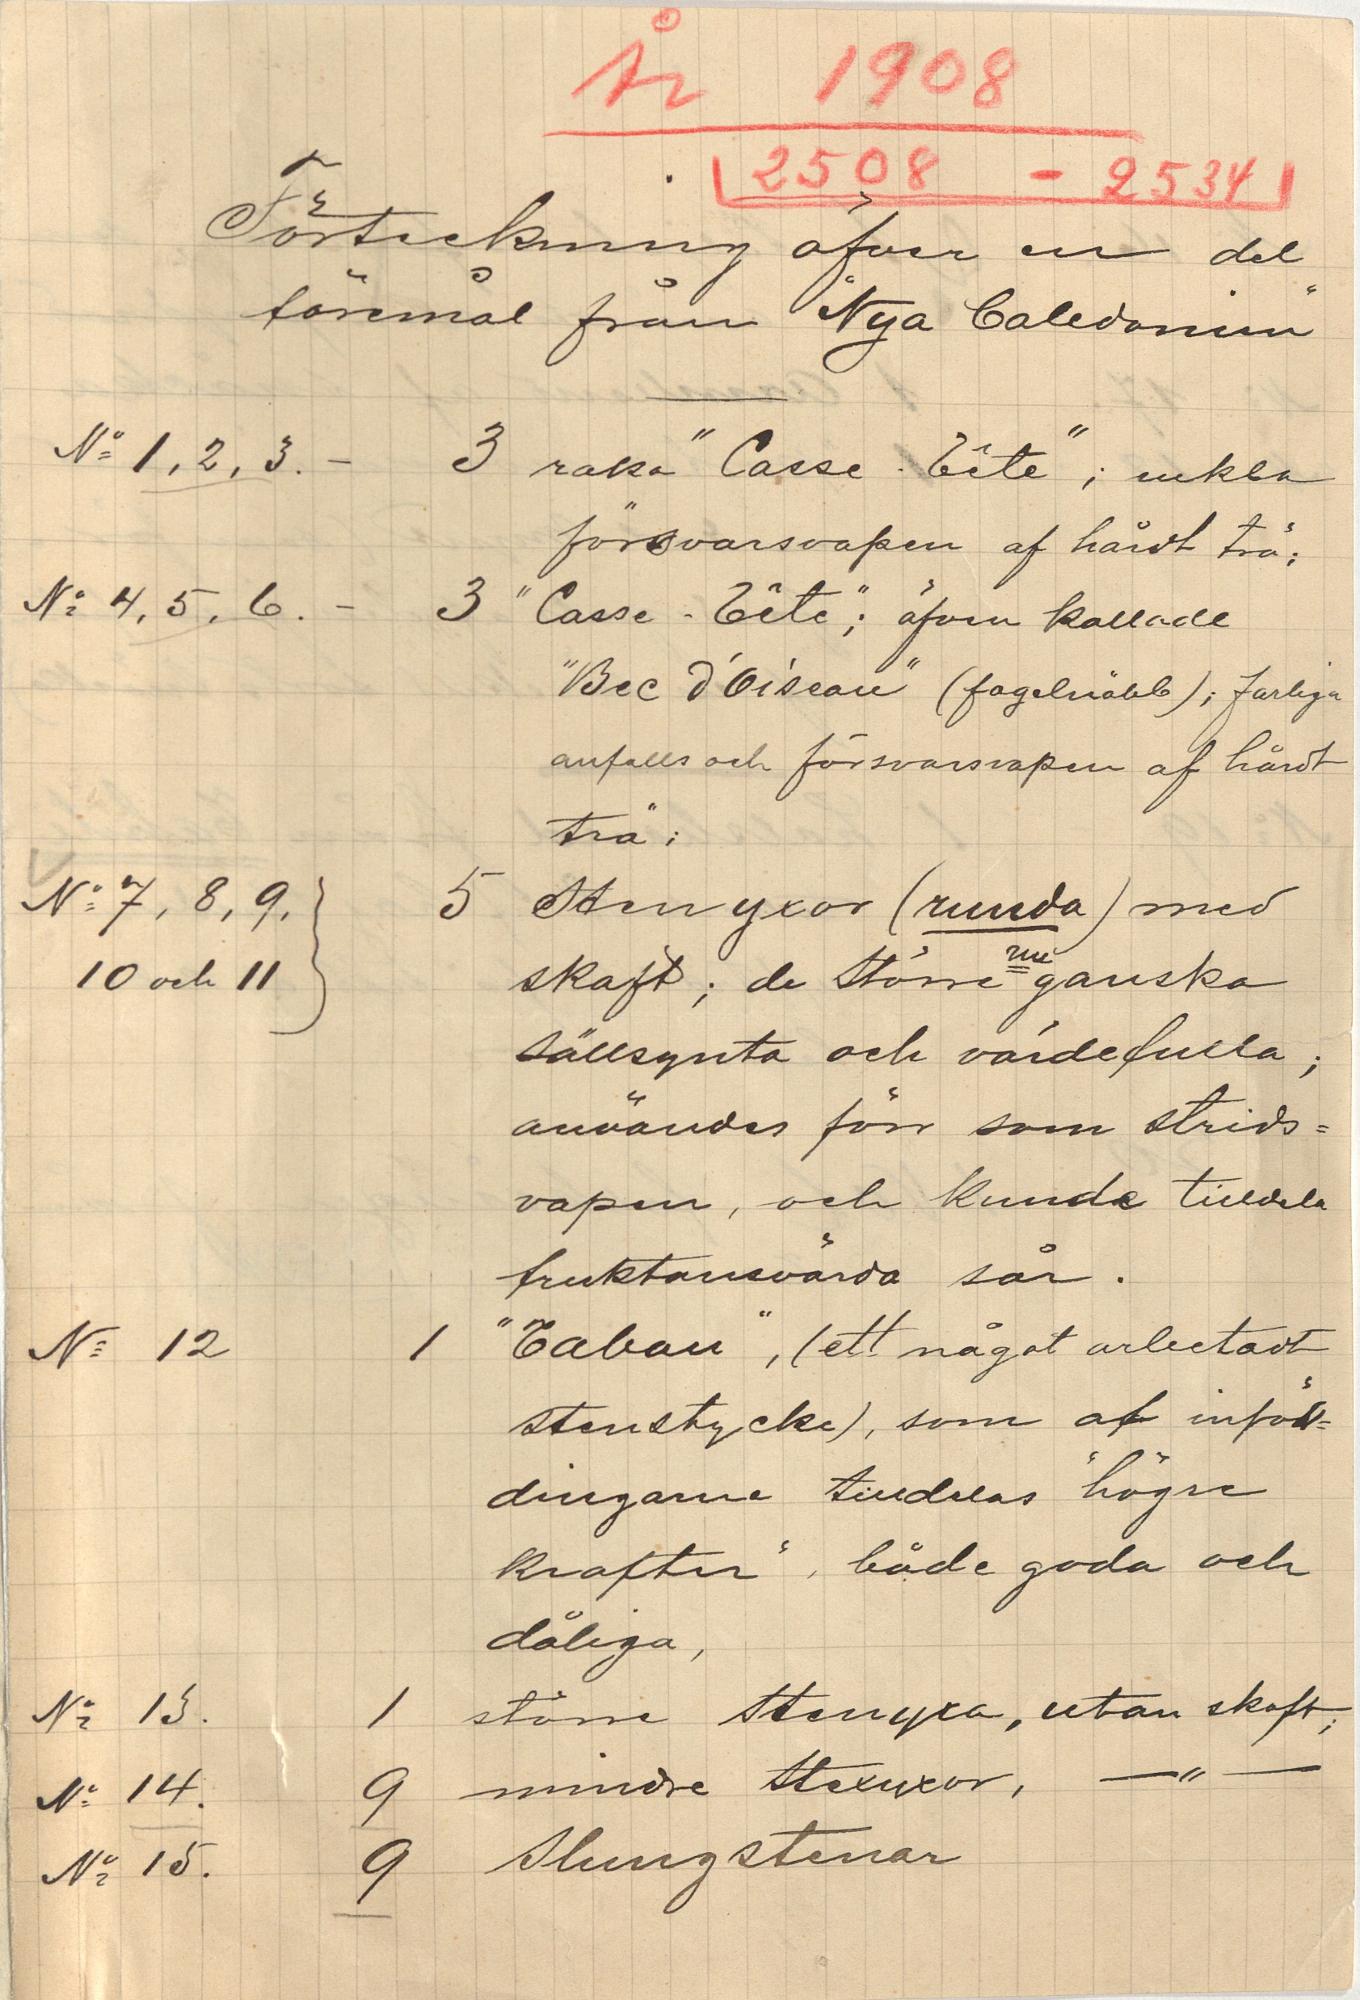 År 1908
2508 - 2534
Förteckning öfver en del
föremål från "Nya Caledonien"
No 1, 2, 3. - 3 raka "Casse-Tête"; enkla
försvarsvapen af hårdt trä;
No 4, 5, 6. - 3 "Casse-Tête"; äfven kallade
"Bec d'Oiseau" (fogelnäbb); farliga
anfalls och försvarsvapen af hårdt
trä;
No 7, 8, 9, 5 Stenyxor (runda) med
10 och 11 skaft; de större nu ganska
sällsynta och värdefulla;
användes förr som strids=
vapen, och kunde tilldela
fruktansvärda sår.
No 12 1 "Tabou", (ett något arbetadt
stenstycke), som af inföd=
dingarne tilldelas "högre
krafter", både goda och
dåliga,
No 13. 1 större Stenyxa, utan skaft;
No 14. 9 mindre Stenyxor, —"—
No 15. 9 Slungstenar